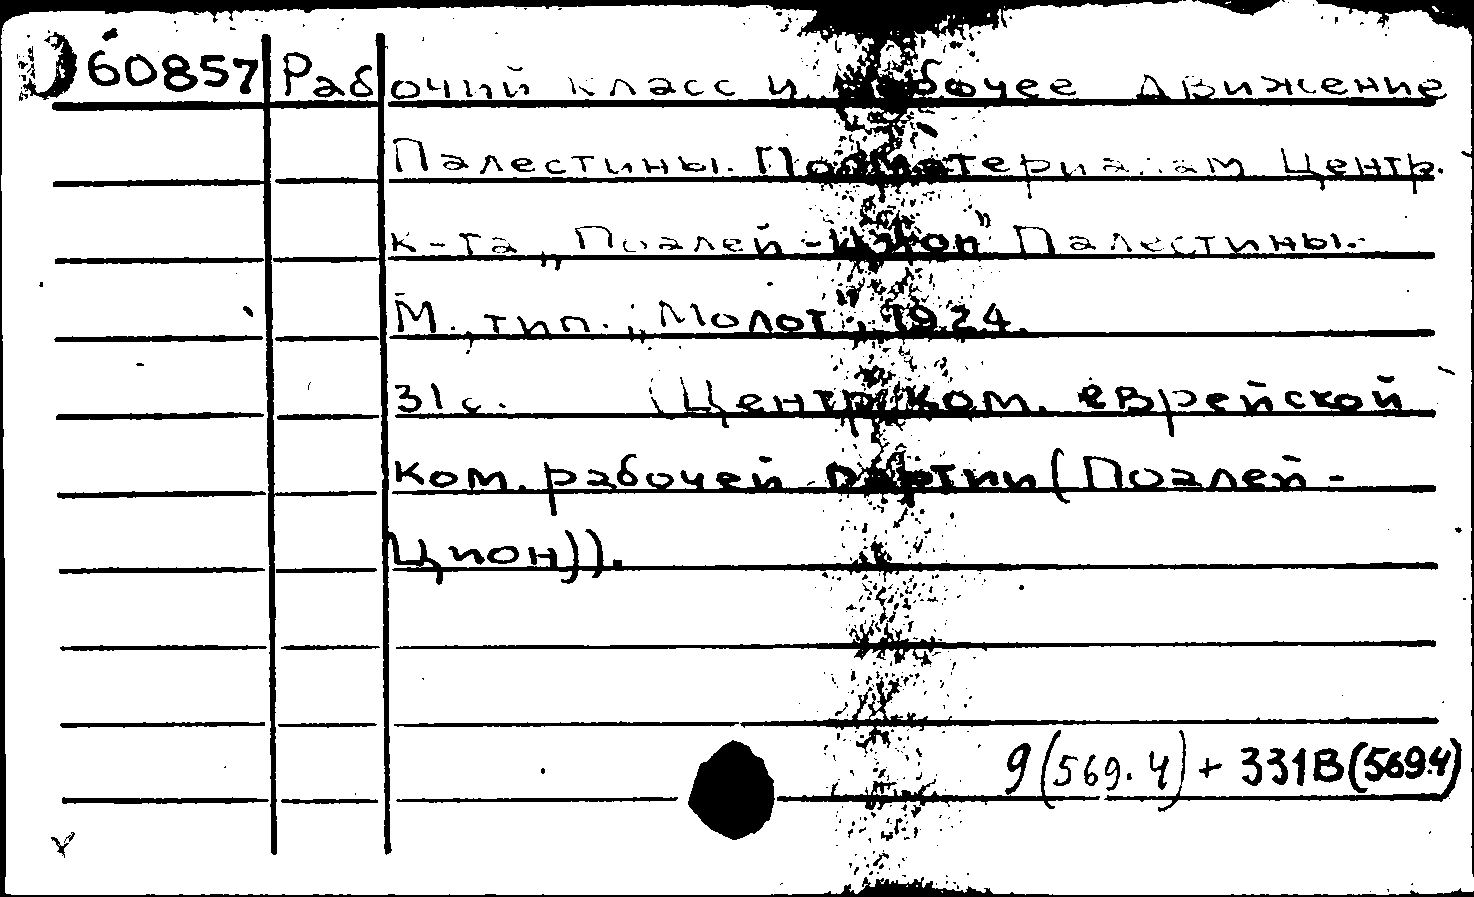 D 60857 Рабочий класс и рабочее движение
Палестины. По материалам Центр.
к-та „Поалей-Цион" Палестины.
М., тип. „Молот", 1924.
31 с. (Центр. ком. еврейской
ком. рабочей партии (Поалей-
Цион)).
9(569.4) + 331В(569.4)